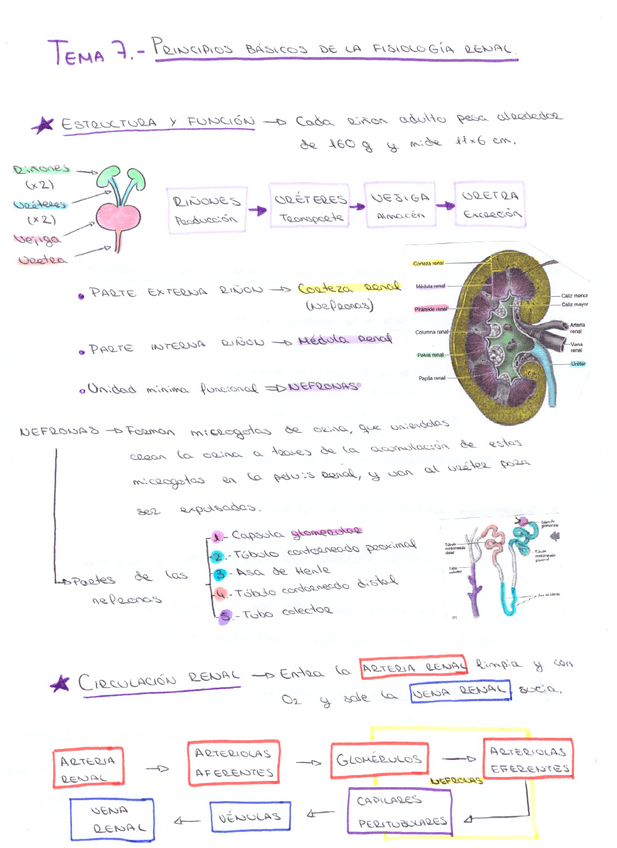 TEMA 7.- PRINCIPIOS BÁSICOS DE LA FISIOLOGÍA RENAL.
★ ESTRUCTURA Y FUNCIÓN → Cada riñon adulto pesa alrededor
de 160 g y mide 11x6 cm.
Riñones
(x2)
Uréteres
(x2)
Vejiga
Uretra
RIÑONES
Producción
→ URÉTERES
Transporte
→ VEJIGA
Almacén
→ URETRA
Excreción
• PARTE EXTERNA RIÑON → Corteza renal
(Nefronas)
• PARTE INTERNA RIÑON → Médula Renal
• Unidad mínima funcional ⇒ NEFRONAS
Corteza renal
Médula renal
Pirámide renal
Columna renal
Pelvis renal
Papila renal
Cáliz menor
Cáliz mayor
Arteria
renal
Vena
renal
Uréter
NEFRONAS → Forman microgotas de orina, que uniendolas
crean la orina a traves de la acumulación de estas
microgotas en la pelvis renal, y van al uréter para
ser expulsadas.
→ Partes de las
nefronas
1.- Capsula glomerular
2.- Túbulo contorneado proximal
3.- Asa de Henle
4.- Túbulo contorneado distal
5.- Tubo colector
★ CIRCULACIÓN RENAL → Entra la ARTERIA RENAL limpia y con
O2 y sale la VENA RENAL sucia.
ARTERIA
RENAL
→ ARTERIOLAS
AFERENTES
→ GLOMÉRULOS
→ ARTERIOLAS
EFERENTES
NEFRONAS
CAPILARES
PERITUBULARES
← VÉNULAS
← VENA
RENAL